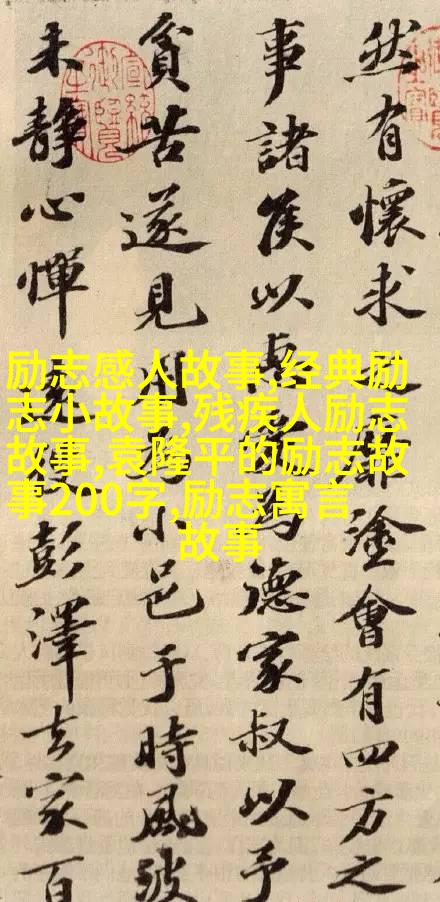 然有懷求靡塗會有四方之
事諸侯以德家叔以予
貧苦遂見用小邑于時風波
未静心惮役彭澤去家百
励志感人故事,经典励
志小故事,残疾人励志
故事,袁隆平的励志故
事200字,励志寓言
故事